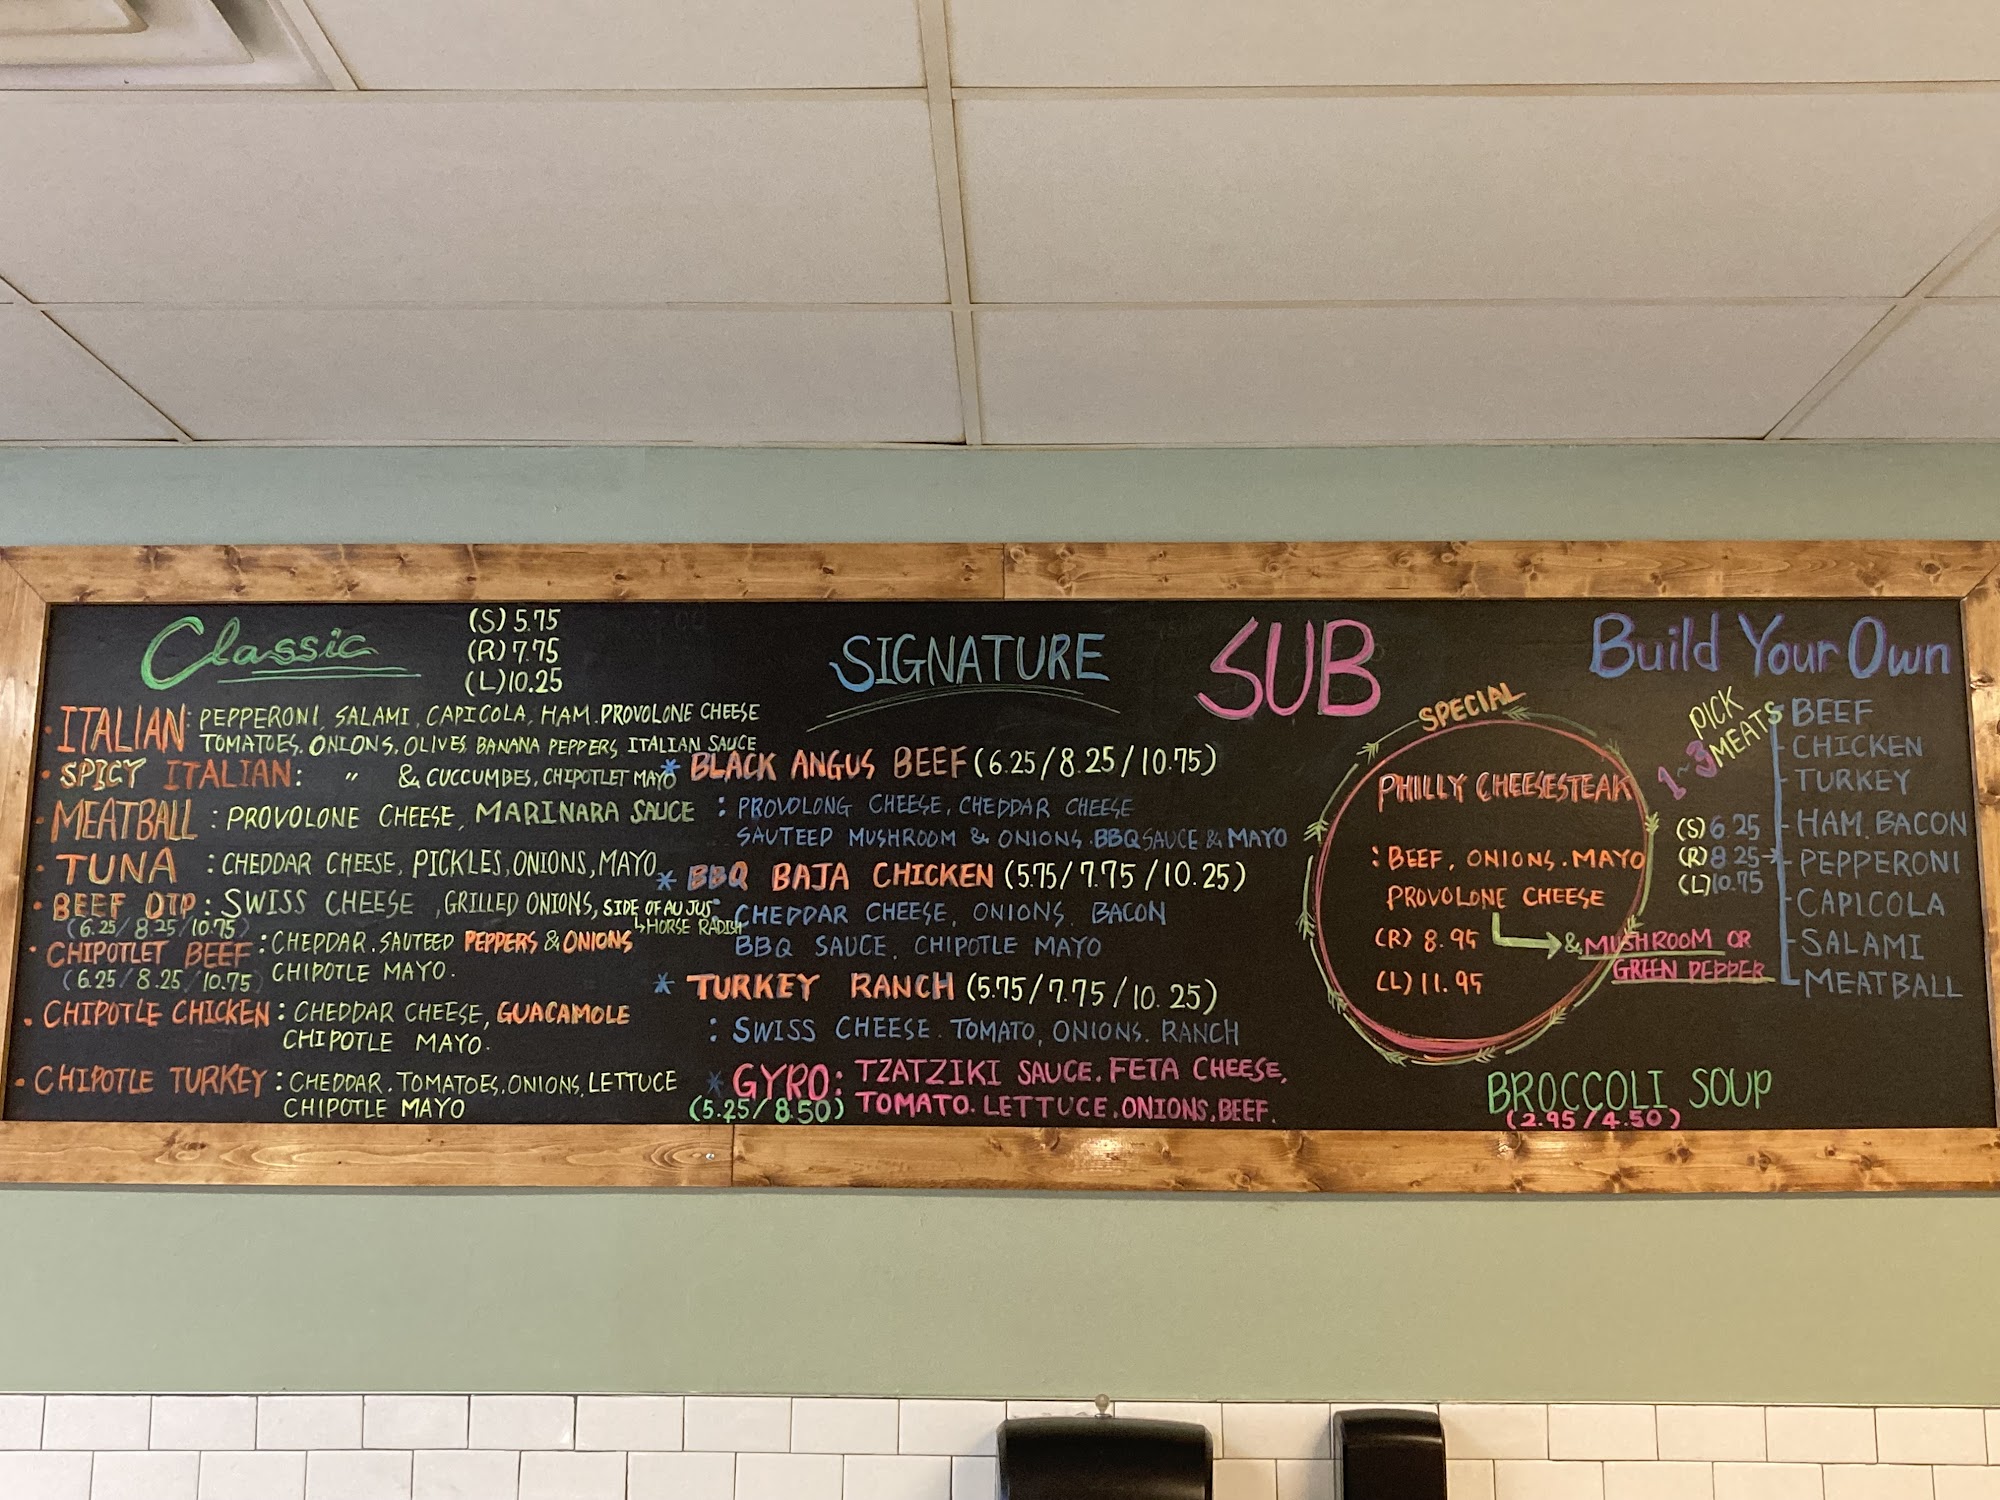 Classic
(S) 5.75
(R) 7.75
(L) 10.25
• ITALIAN: PEPPERONI, SALAMI, CAPICOLA, HAM. PROVOLONE CHEESE
TOMATOES, ONIONS, OLIVES, BANANA PEPPERS, ITALIAN SAUCE
• SPICY ITALIAN: " & CUCCUMBES, CHIPOTLET MAYO
• MEATBALL: PROVOLONE CHEESE, MARINARA SAUCE
• TUNA: CHEDDAR CHEESE, PICKLES, ONIONS, MAYO
• BEEF DIP: SWISS CHEESE, GRILLED ONIONS, SIDE OF AU JUS
(6.25/8.25/10.75)
↳HORSE RADISH
• CHIPOTLET BEEF: CHEDDAR. SAUTEED PEPPERS & ONIONS
(6.25/8.25/10.75) CHIPOTLE MAYO.
• CHIPOTLE CHICKEN: CHEDDAR CHEESE, GUACAMOLE
CHIPOTLE MAYO.
• CHIPOTLE TURKEY: CHEDDAR. TOMATOES, ONIONS, LETTUCE
CHIPOTLE MAYO
SIGNATURE
SUB
* BLACK ANGUS BEEF (6.25/8.25/10.75)
: PROVOLONG CHEESE, CHEDDAR CHEESE
SAUTEED MUSHROOM & ONIONS. BBQ SAUCE & MAYO
* BBQ BAJA CHICKEN (5.75/7.75/10.25)
: CHEDDAR CHEESE, ONIONS, BACON
BBQ SAUCE, CHIPOTLE MAYO
* TURKEY RANCH (5.75/7.75/10.25)
: SWISS CHEESE. TOMATO, ONIONS. RANCH
* GYRO: TZATZIKI SAUCE. FETA CHEESE,
(5.25/8.50) TOMATO. LETTUCE, ONIONS, BEEF.
SPECIAL
PHILLY CHEESESTEAK
: BEEF, ONIONS. MAYO
PROVOLONE CHEESE
(R) 8.95
(L) 11.95
& MUSHROOM OR
GREEN PEPPER
BROCCOLI SOUP
(2.95/4.50)
Build Your Own
PICK
1~3 MEATS
(S) 6.25
(R) 8.25
(L) 10.75
BEEF
- CHICKEN
- TURKEY
- HAM. BACON
- PEPPERONI
- CAPICOLA
- SALAMI
- MEATBALL